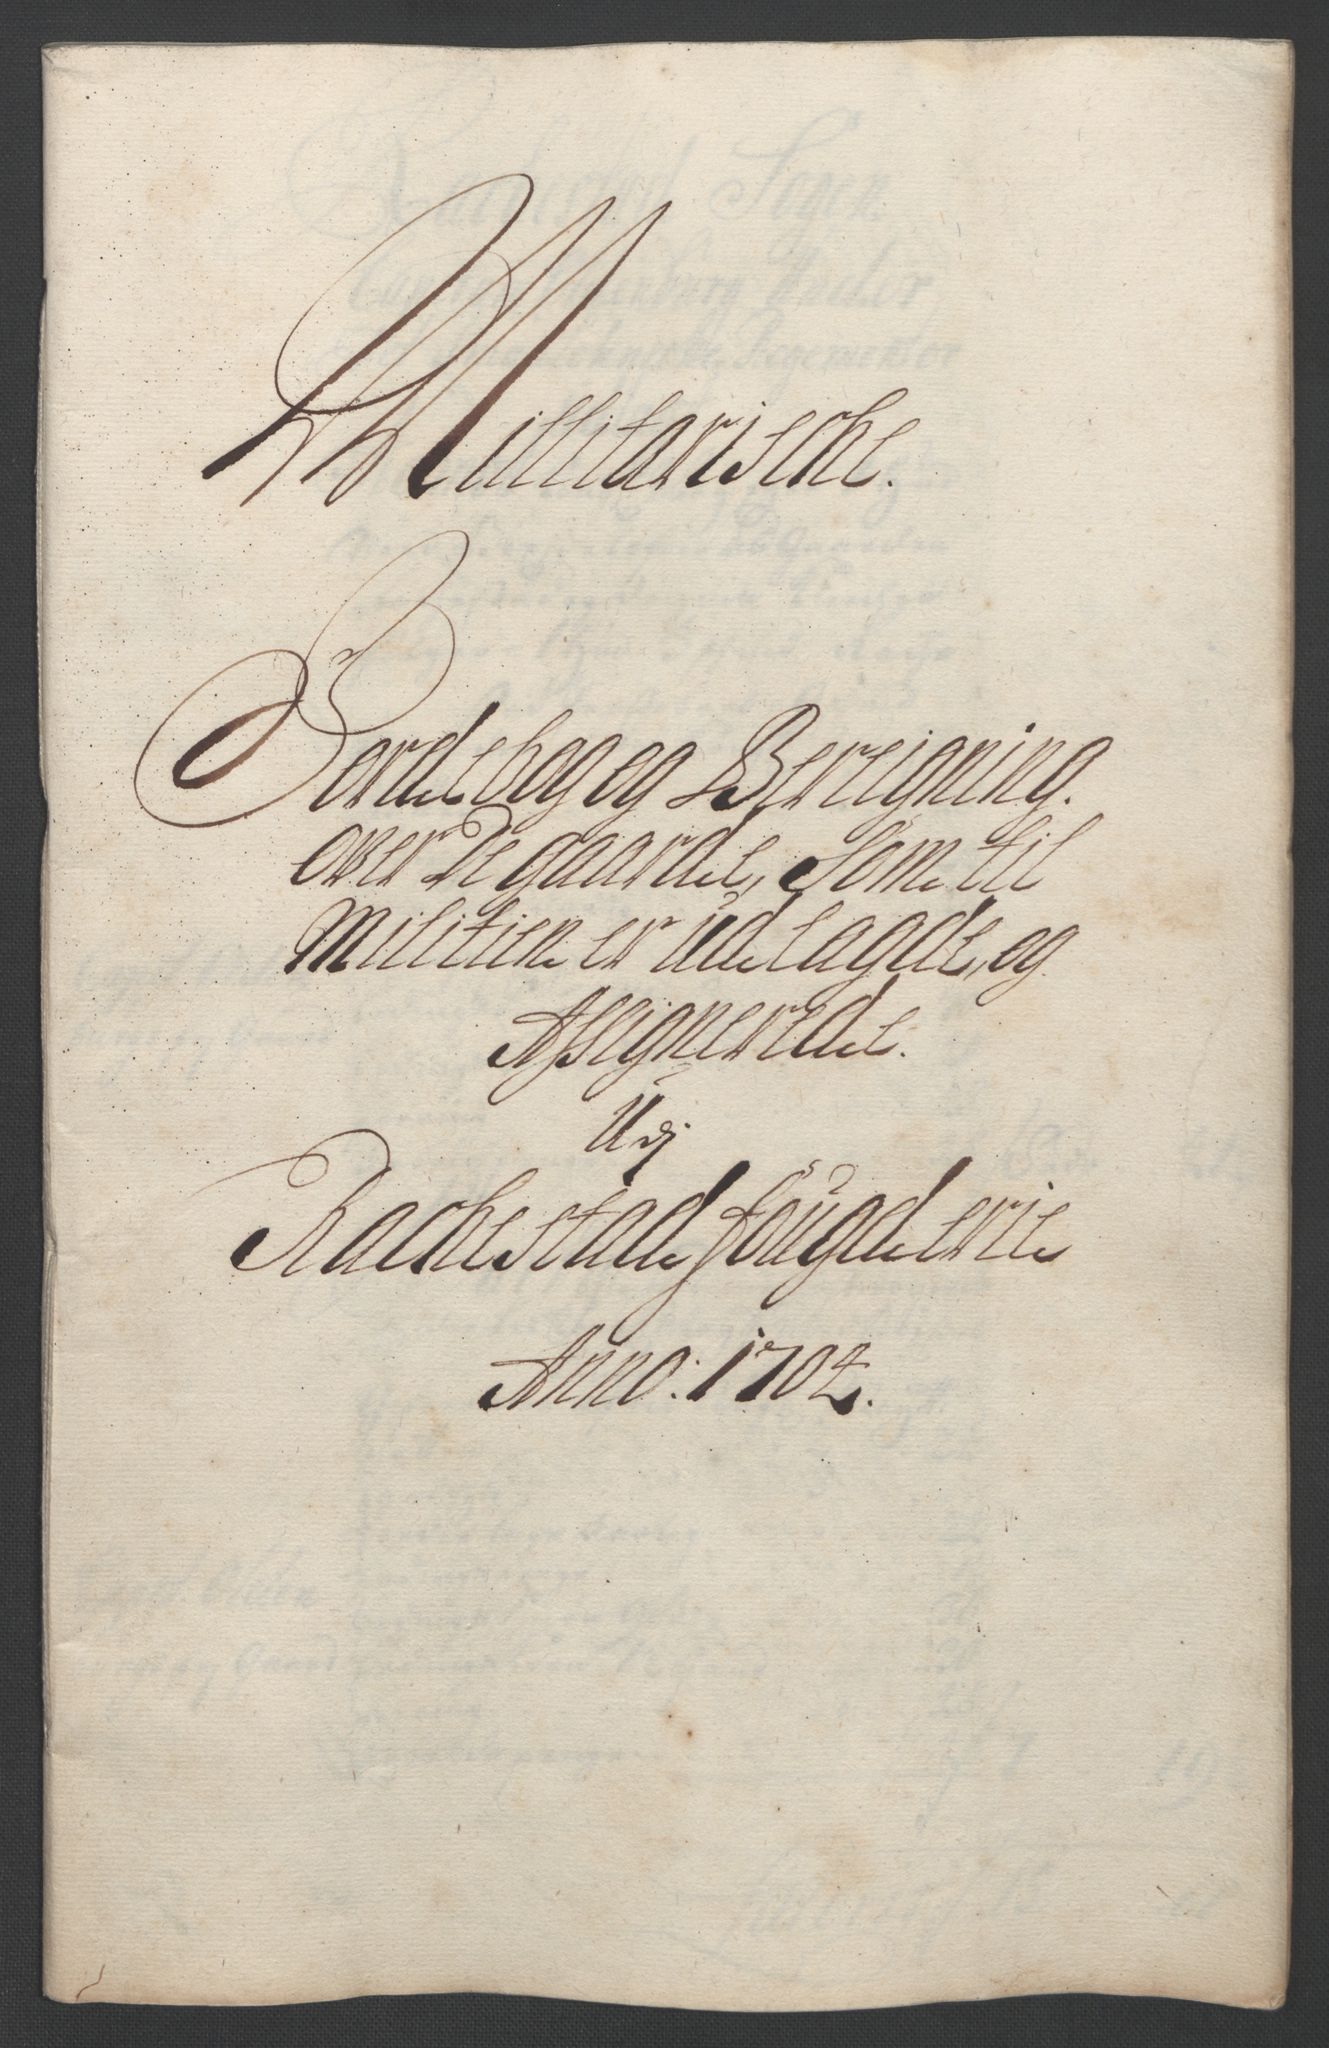 Millitarische.
Jordebog og Bereigning.
over De gaarde, som til
Militien er udlagde, og
Assignerede.
Udj
Rachestad fougderie
Anno: 1702.